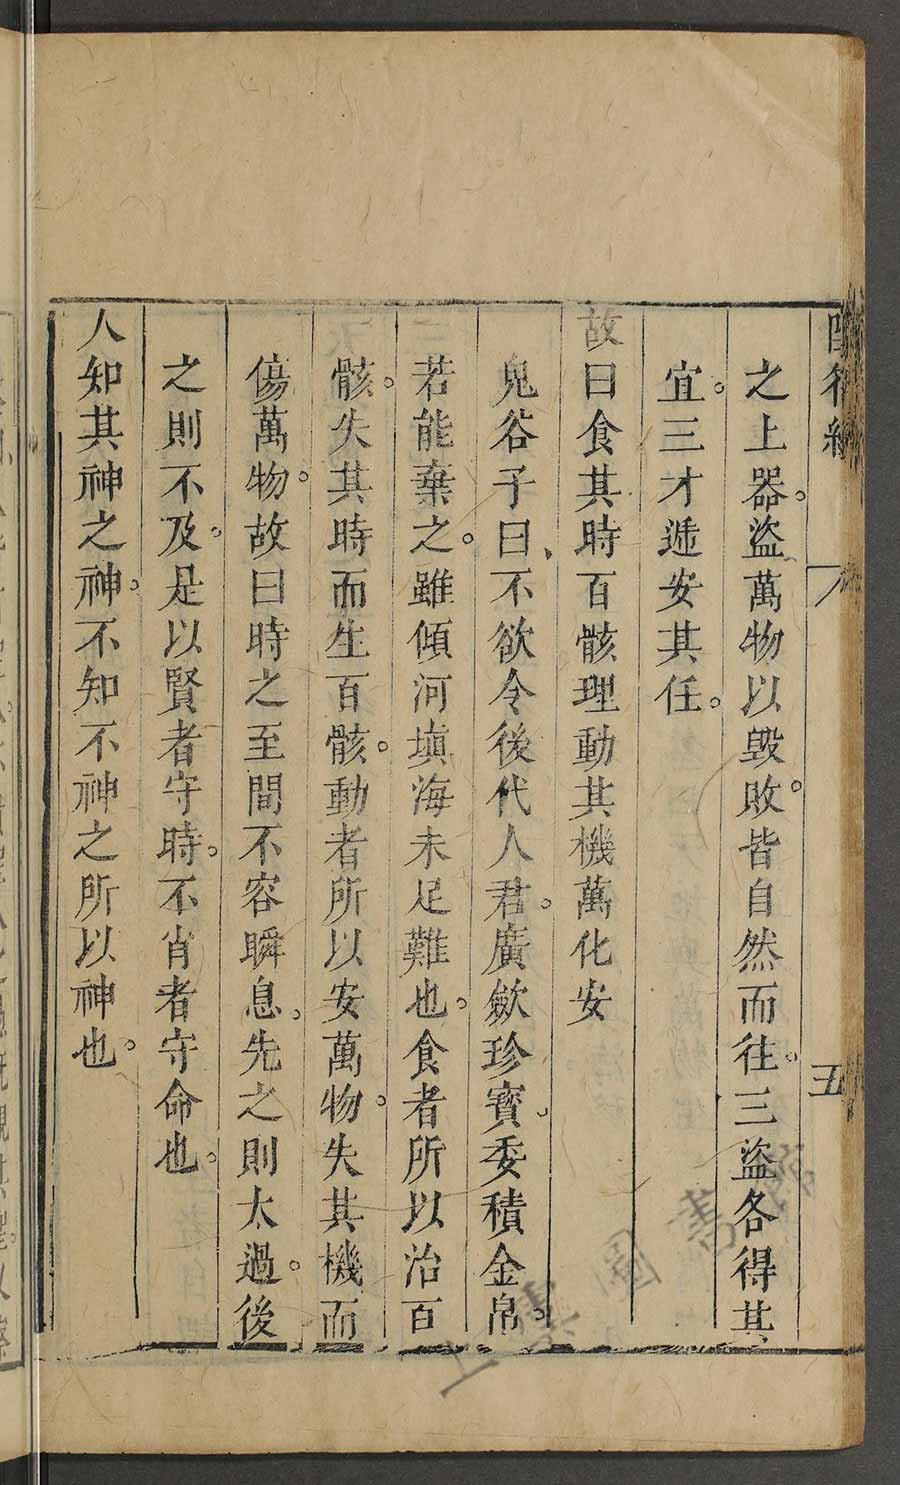 陰符經
五
之上器。盜萬物以毀敗。皆自然而往。三盜各得其
宜。三才遞安其任。
故曰食其時百骸理動其機萬化安
鬼谷子曰、不欲令後代人君。廣斂珍寶、委積金帛。
若能棄之。雖傾河塡海未足難也。食者所以治百
骸。失其時而生百骸。動者所以安萬物。失其機而
傷萬物。故曰時之至間不容瞬息。先之則太過。後
之則不及。是以賢者守時。不肖者守命也。
人知其神之神。不知不神之所以神也。